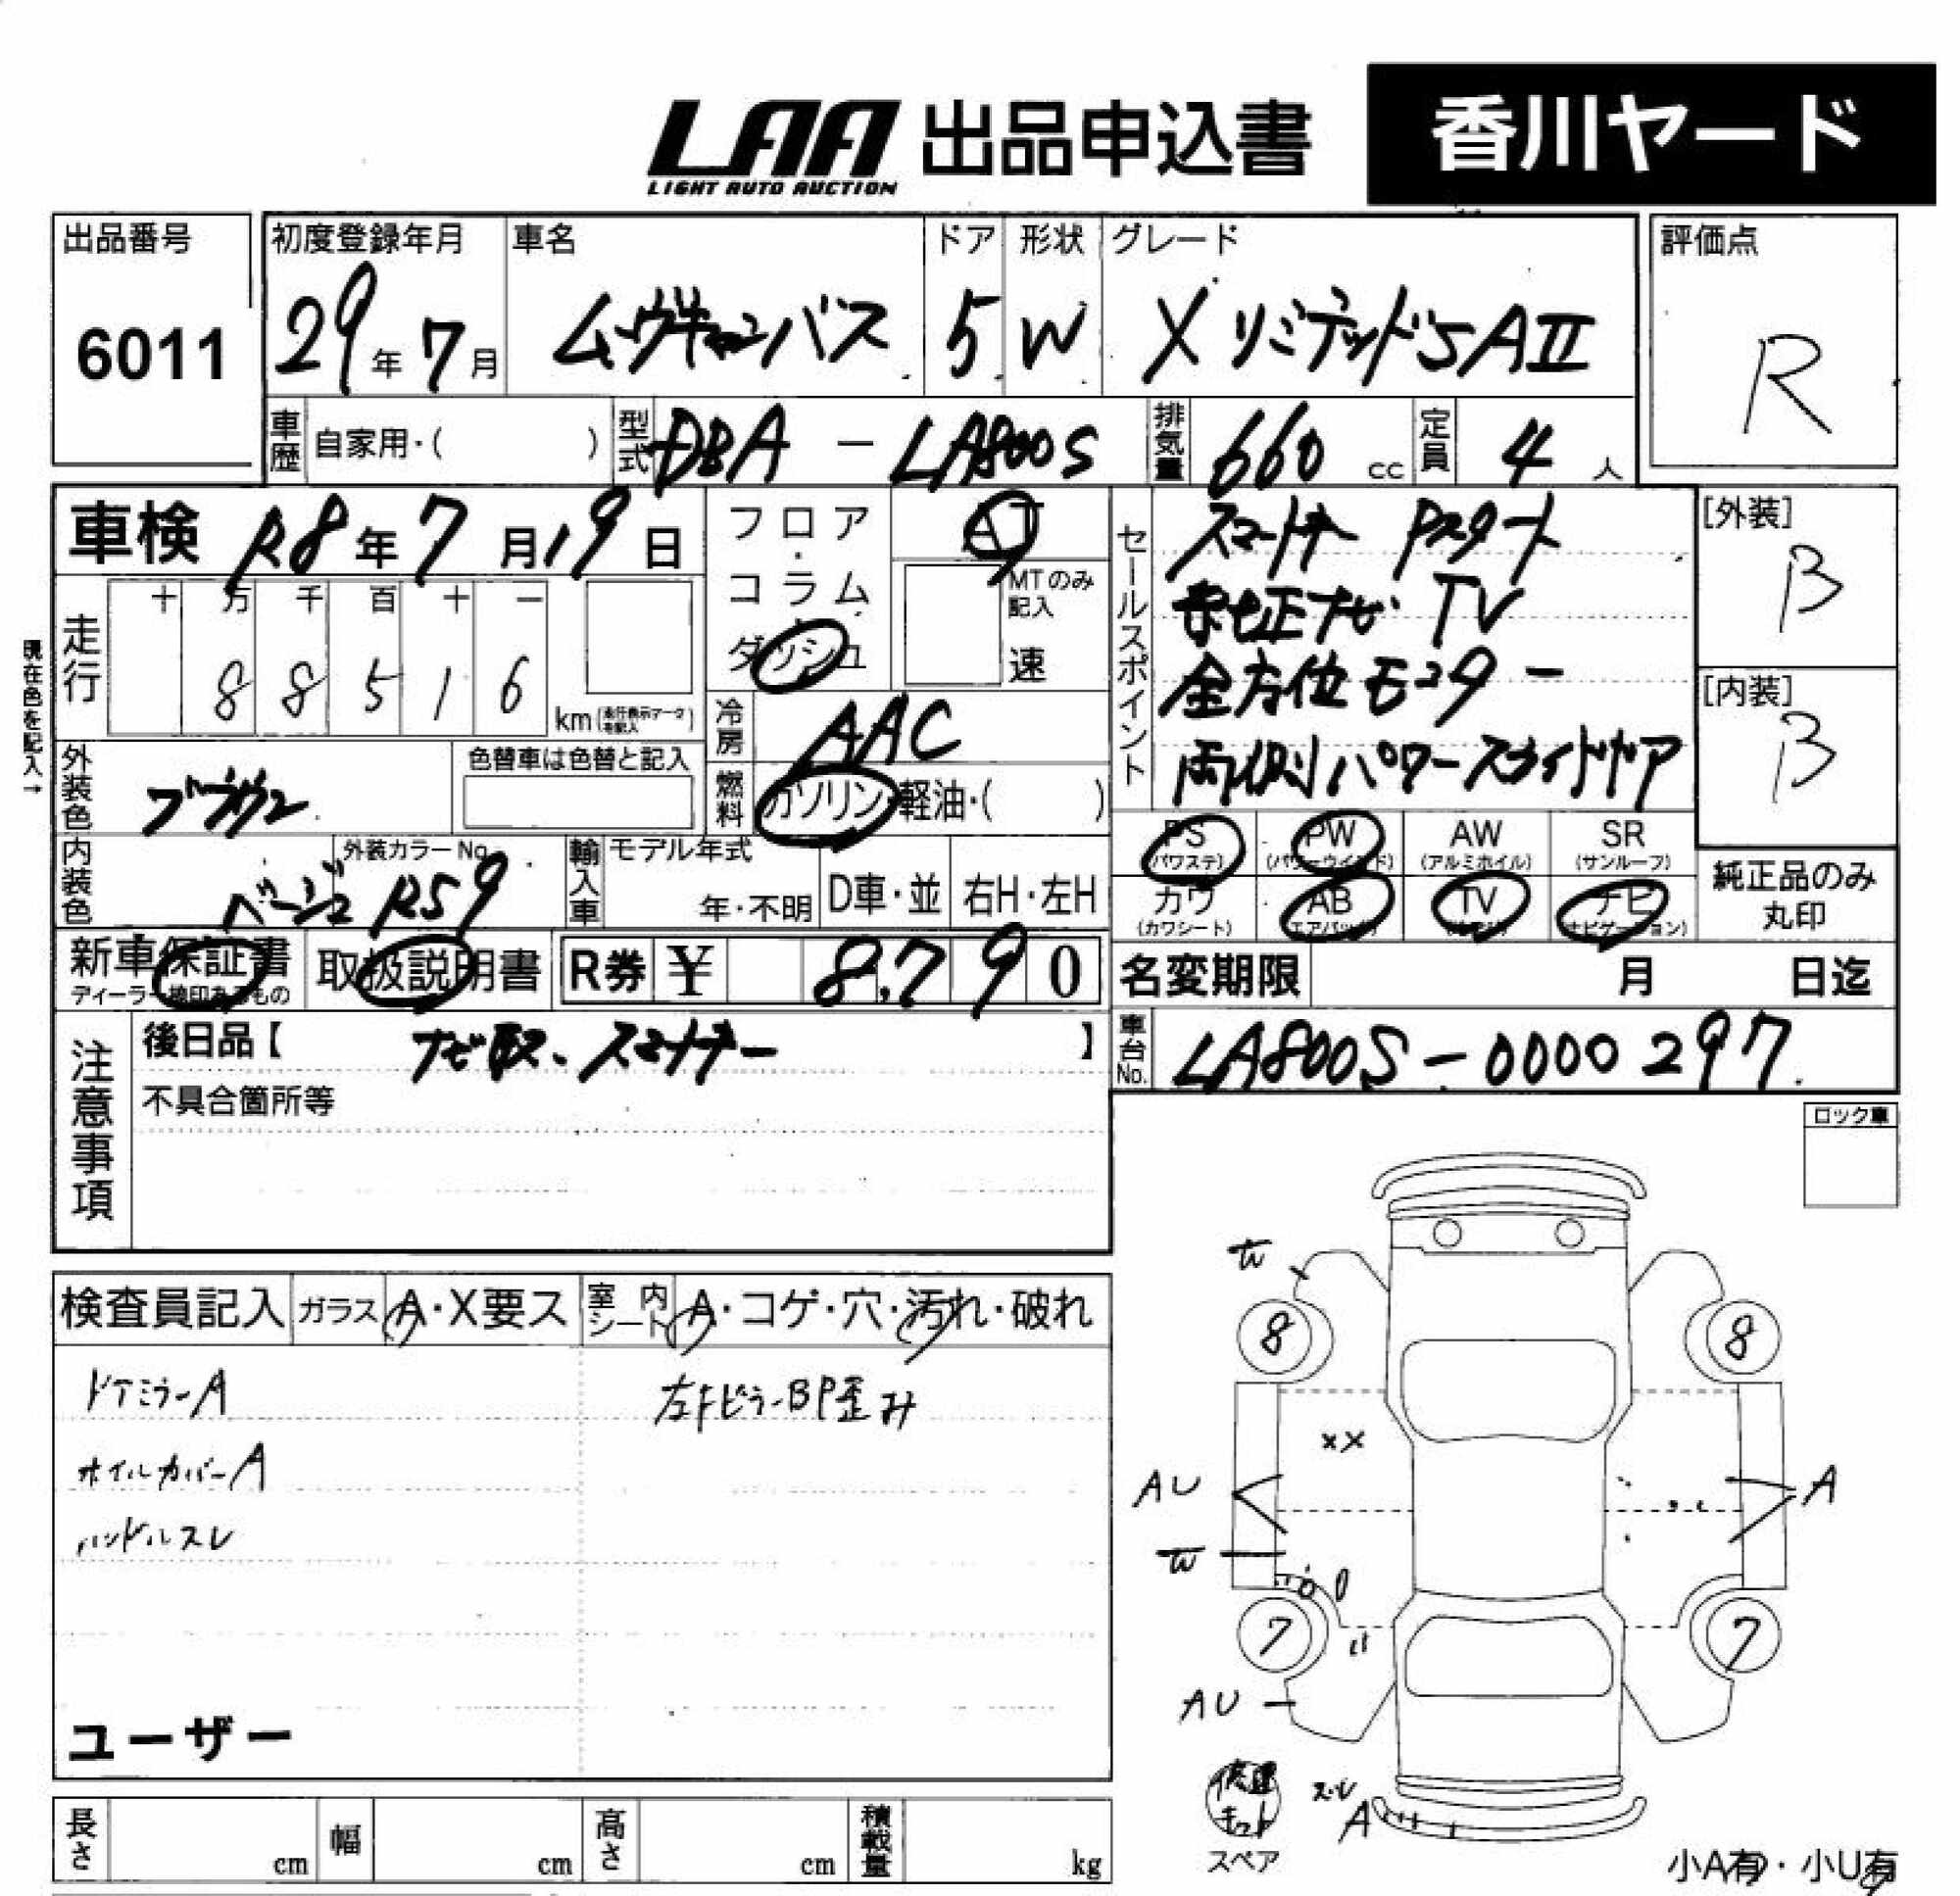 LAA 出品申込書 香川ヤード
LIGHT AUTO AUCTION
出品番号 初度登録年月 車名 ドア 形状 グレード 評価点
6011 29年7月 ムーヴキャンバス 5 W XリミテッドSAII R
車歴 自家用・( ) 型式 DBA-LA800S 排気量 660 cc 定員 4人
車検 R8年7月19日
フロア・コラム・ダッシュ AT
MTのみ記入
速
セールスポイント
スマートキー Pスタート
純正ナビ TV
全方位モニター
両側パワースライドドア
[外装] B
[内装] B
現在色を記入→
走行 十 万 千 百 十 一
8 8 5 1 6 km
冷房 AAC
外装色 ブラウン 色替車は色替と記入
燃料 ガソリン・軽油・( )
内装色 ベージュ 外装カラーNo. R59
輸入車 モデル年式 年・不明 D車・並 右H・左H
PS PW AW SR
(パワステ) (パワーウインド) (アルミホイル) (サンルーフ)
カワ AB TV ナビ
(カワシート) (エアバッグ) (ナビゲーション)
純正品のみ
丸印
新車保証書 取扱説明書 R券 ¥ 8,790
ディーラー捺印あるもの
名変期限 月 日迄
注意事項
後日品【 ナビ取、スマートキー 】
不具合箇所等
車台No. LA800S-0000297
ロック車
検査員記入 ガラス A・X要ス 室内シート A・コゲ・穴・汚れ・破れ
ドアミラーA 左FピラーBP歪み
ホイルカバーA
ハンドルスレ
ユーザー
W
8 8
XX
AU A
W
7 7
AU
修理キット
スレ
A
スペア
小A有・小U有
長さ cm 幅 cm 高さ cm 積載量 kg